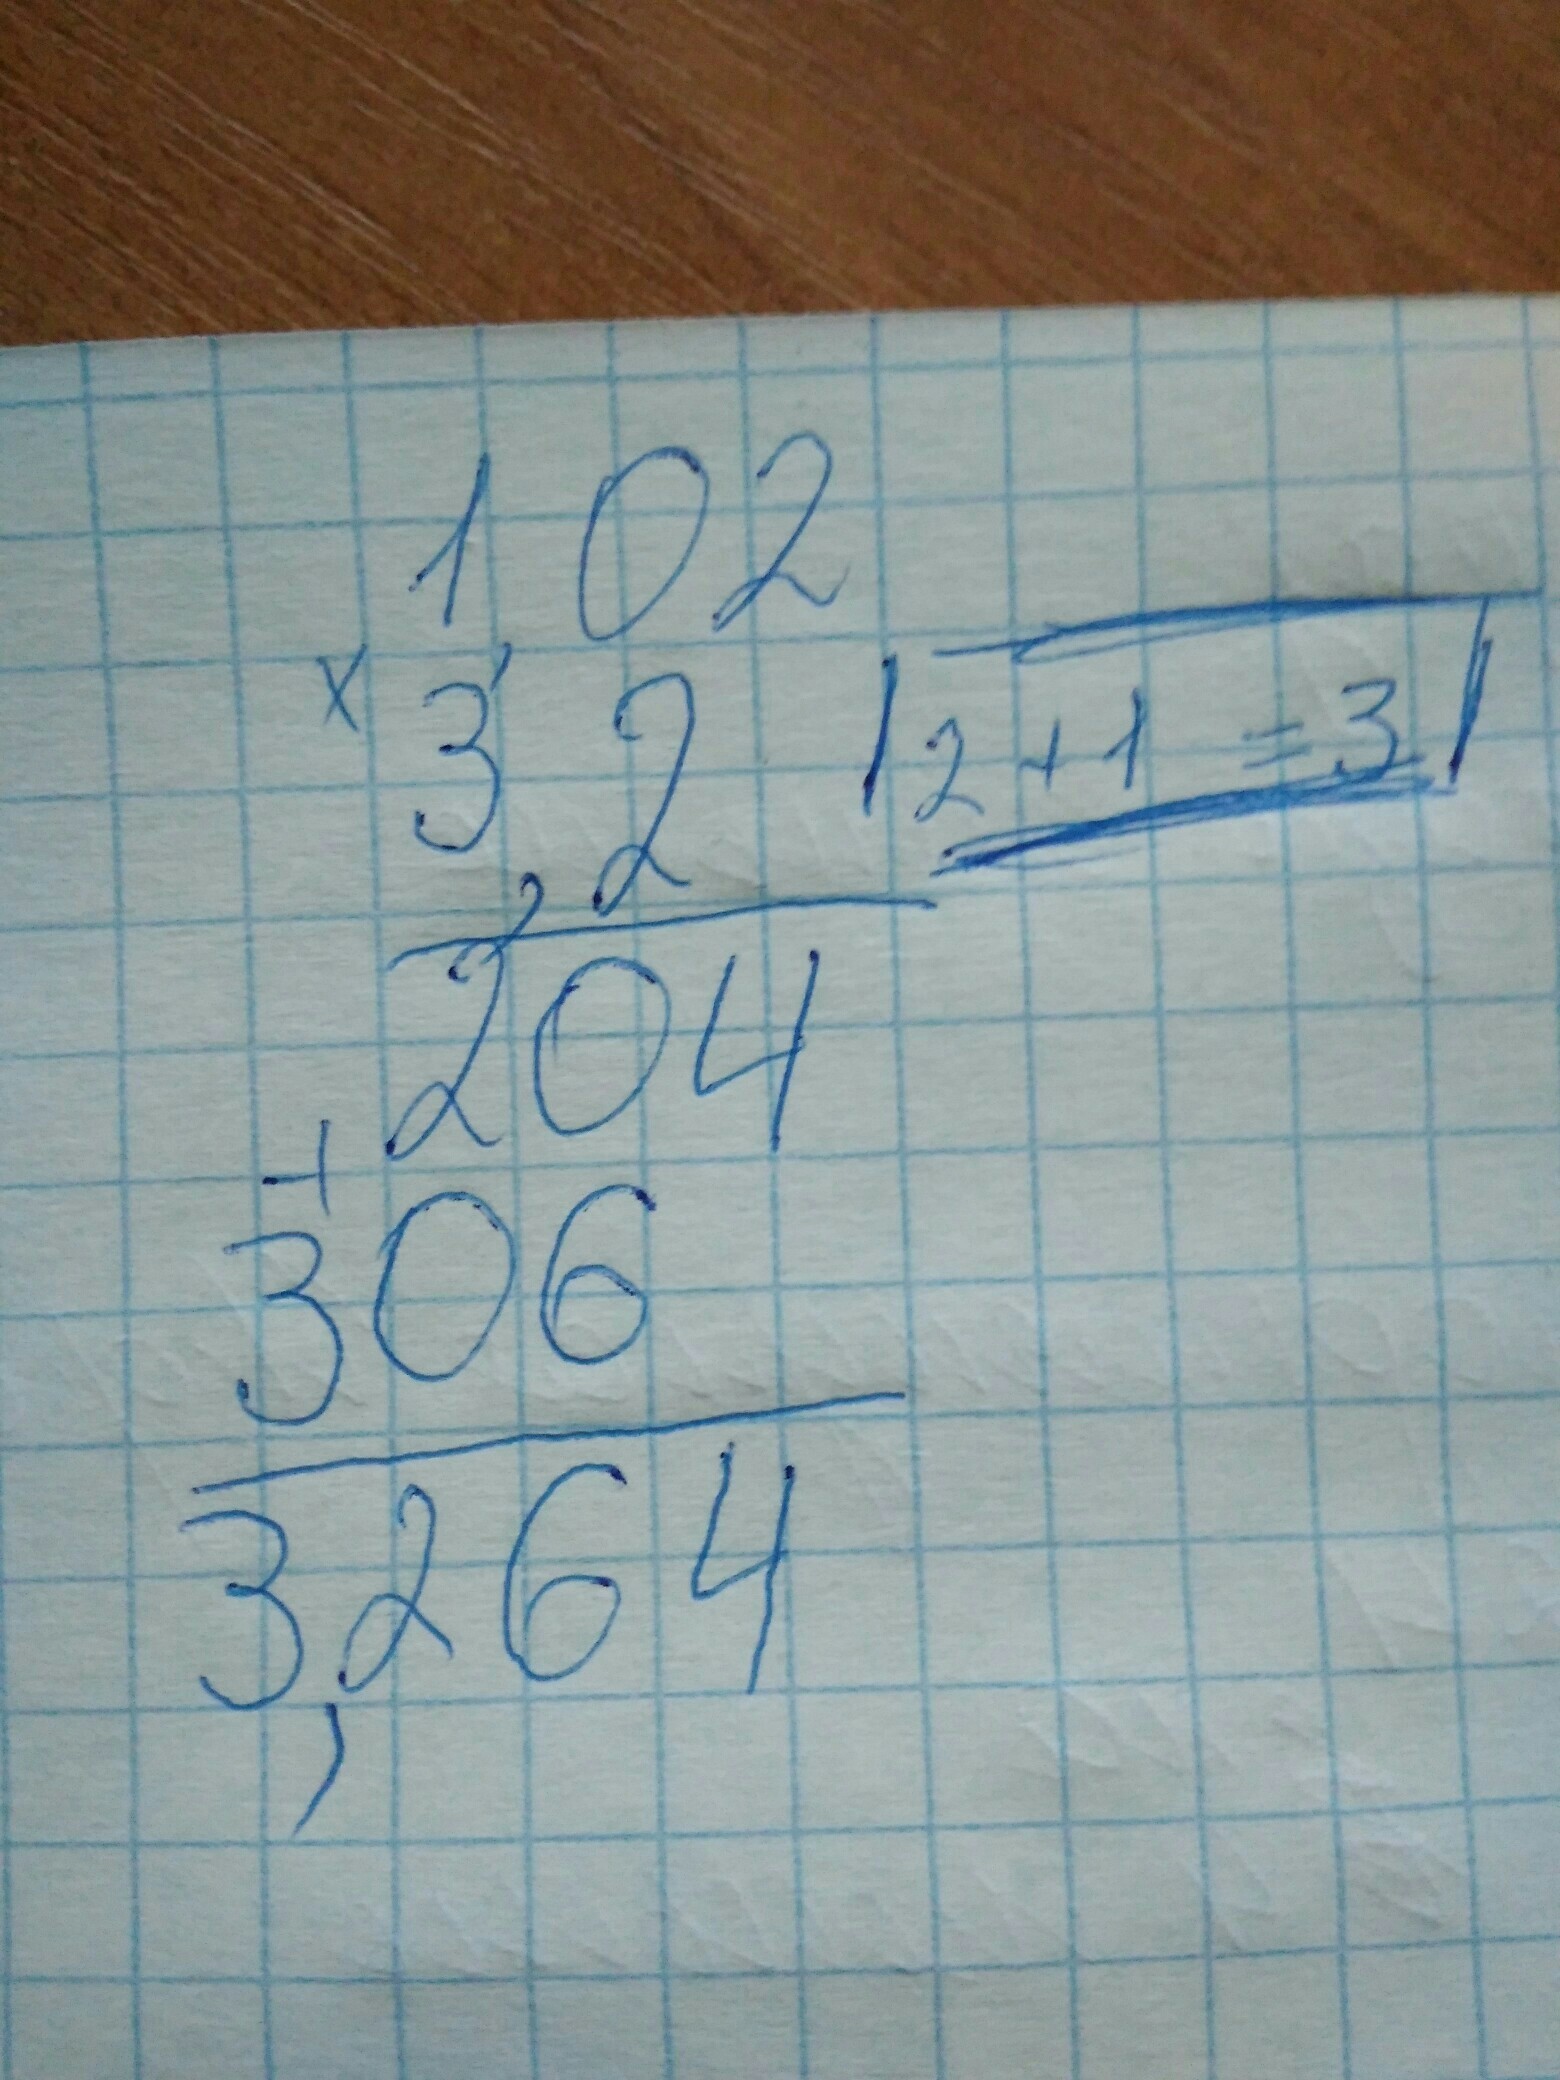 1,02
x 3,2 | 2 + 1 = 3 |
204
+
306
3,264